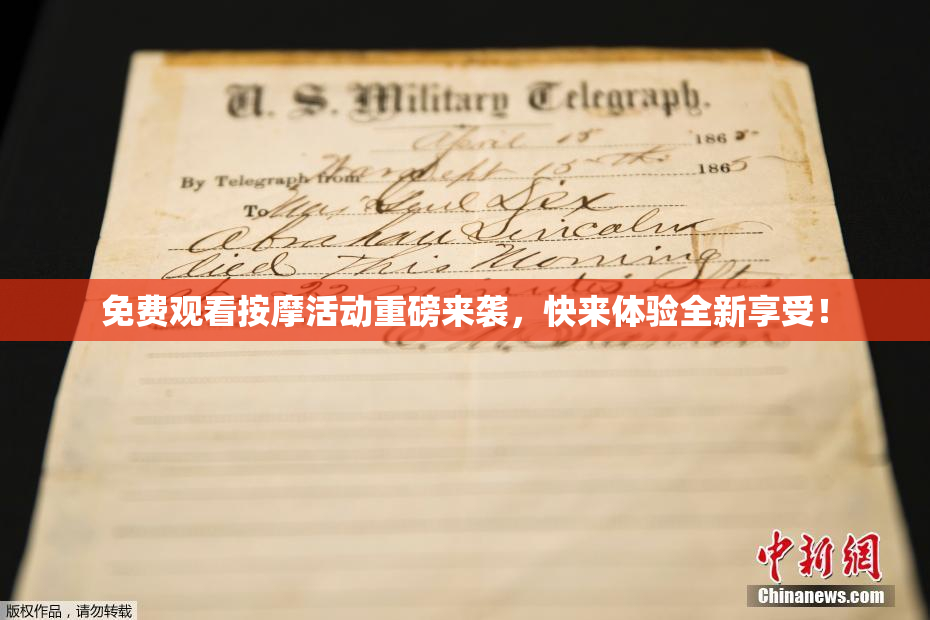 U. S. Military Telegraph.
April 15 1865
By Telegraph from War Dept 15th 1865
To Maj Genl Dix
Abraham Lincoln
died This Morning
at 22 minutes after
免费观看按摩活动重磅来袭，快来体验全新享受！
E. M. Stanton
中新网
Chinanews.com
版权作品，请勿转载